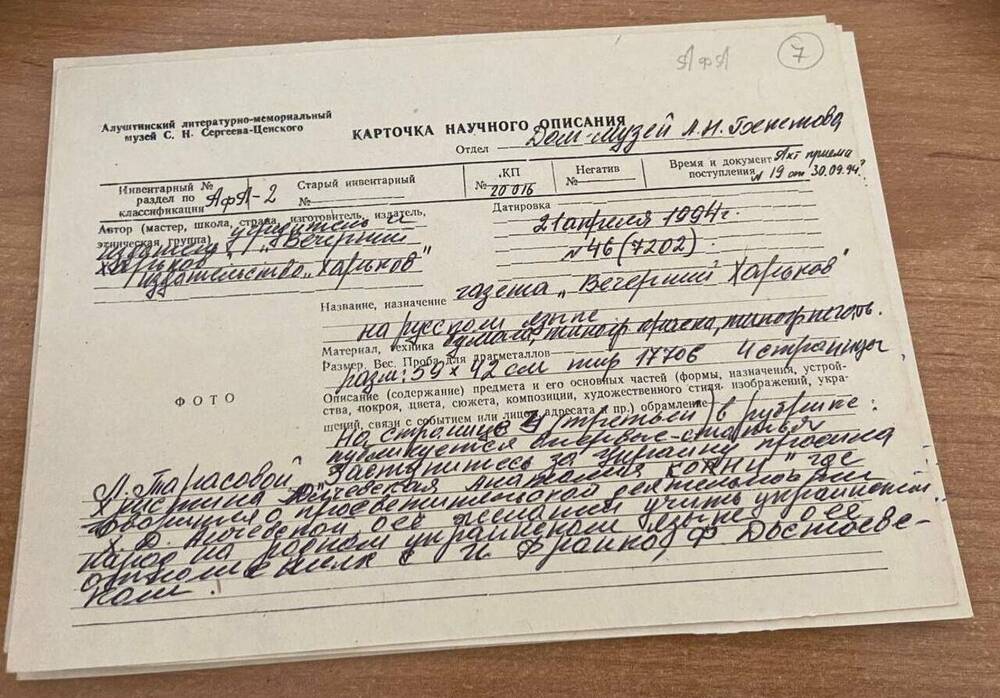 АфА
7
Алуштинский литературно-мемориальный
музей С. Н. Сергеева-Ценского
КАРТОЧКА НАУЧНОГО ОПИСАНИЯ
Отдел Дом-музей А.Н.
Инвентарный №
раздел по
классификации АфА-2
Старый инвентарный
№
КП
№ 20016
Негатив
№
Время и документ Акт приема
поступления № 19 от 30.09.94г.
Автор (мастер, школа, страна, изготовитель, издатель,
этническая группа) учредитель и
издатель „Вечерний
Харьков"
издательство „Харьков"
Датировка
21 апреля 1994г.
№ 46 (7202)
Название, назначение газета „Вечерний Харьков"
на русском языке
Материал, техника бумага, типогр. краска, типогр. печать.
Размер. Вес. Проба для драгметаллов
разм: 59 х 42 см тир 17706 4 страницы
Описание (содержание) предмета и его основных частей (формы, назначения, устрой-
ства, покроя, цвета, сюжета, композиции, художественного стиля. изображений, укра-
шений, связи с событием или лицом, адресата и пр.) обрамление
ФОТО
На странице (третьей) в рубрике:
публикуется впервые - статья
Л. Тарасовой „Заступитесь за Украину просила
Христина Алчевская" где
говорится о просветительской деятельности
Х. Д. Алчевской о ее желании учить украинский
народ на родном украинском языке о ее
с И Франко, Ф Достоевс-
ким.